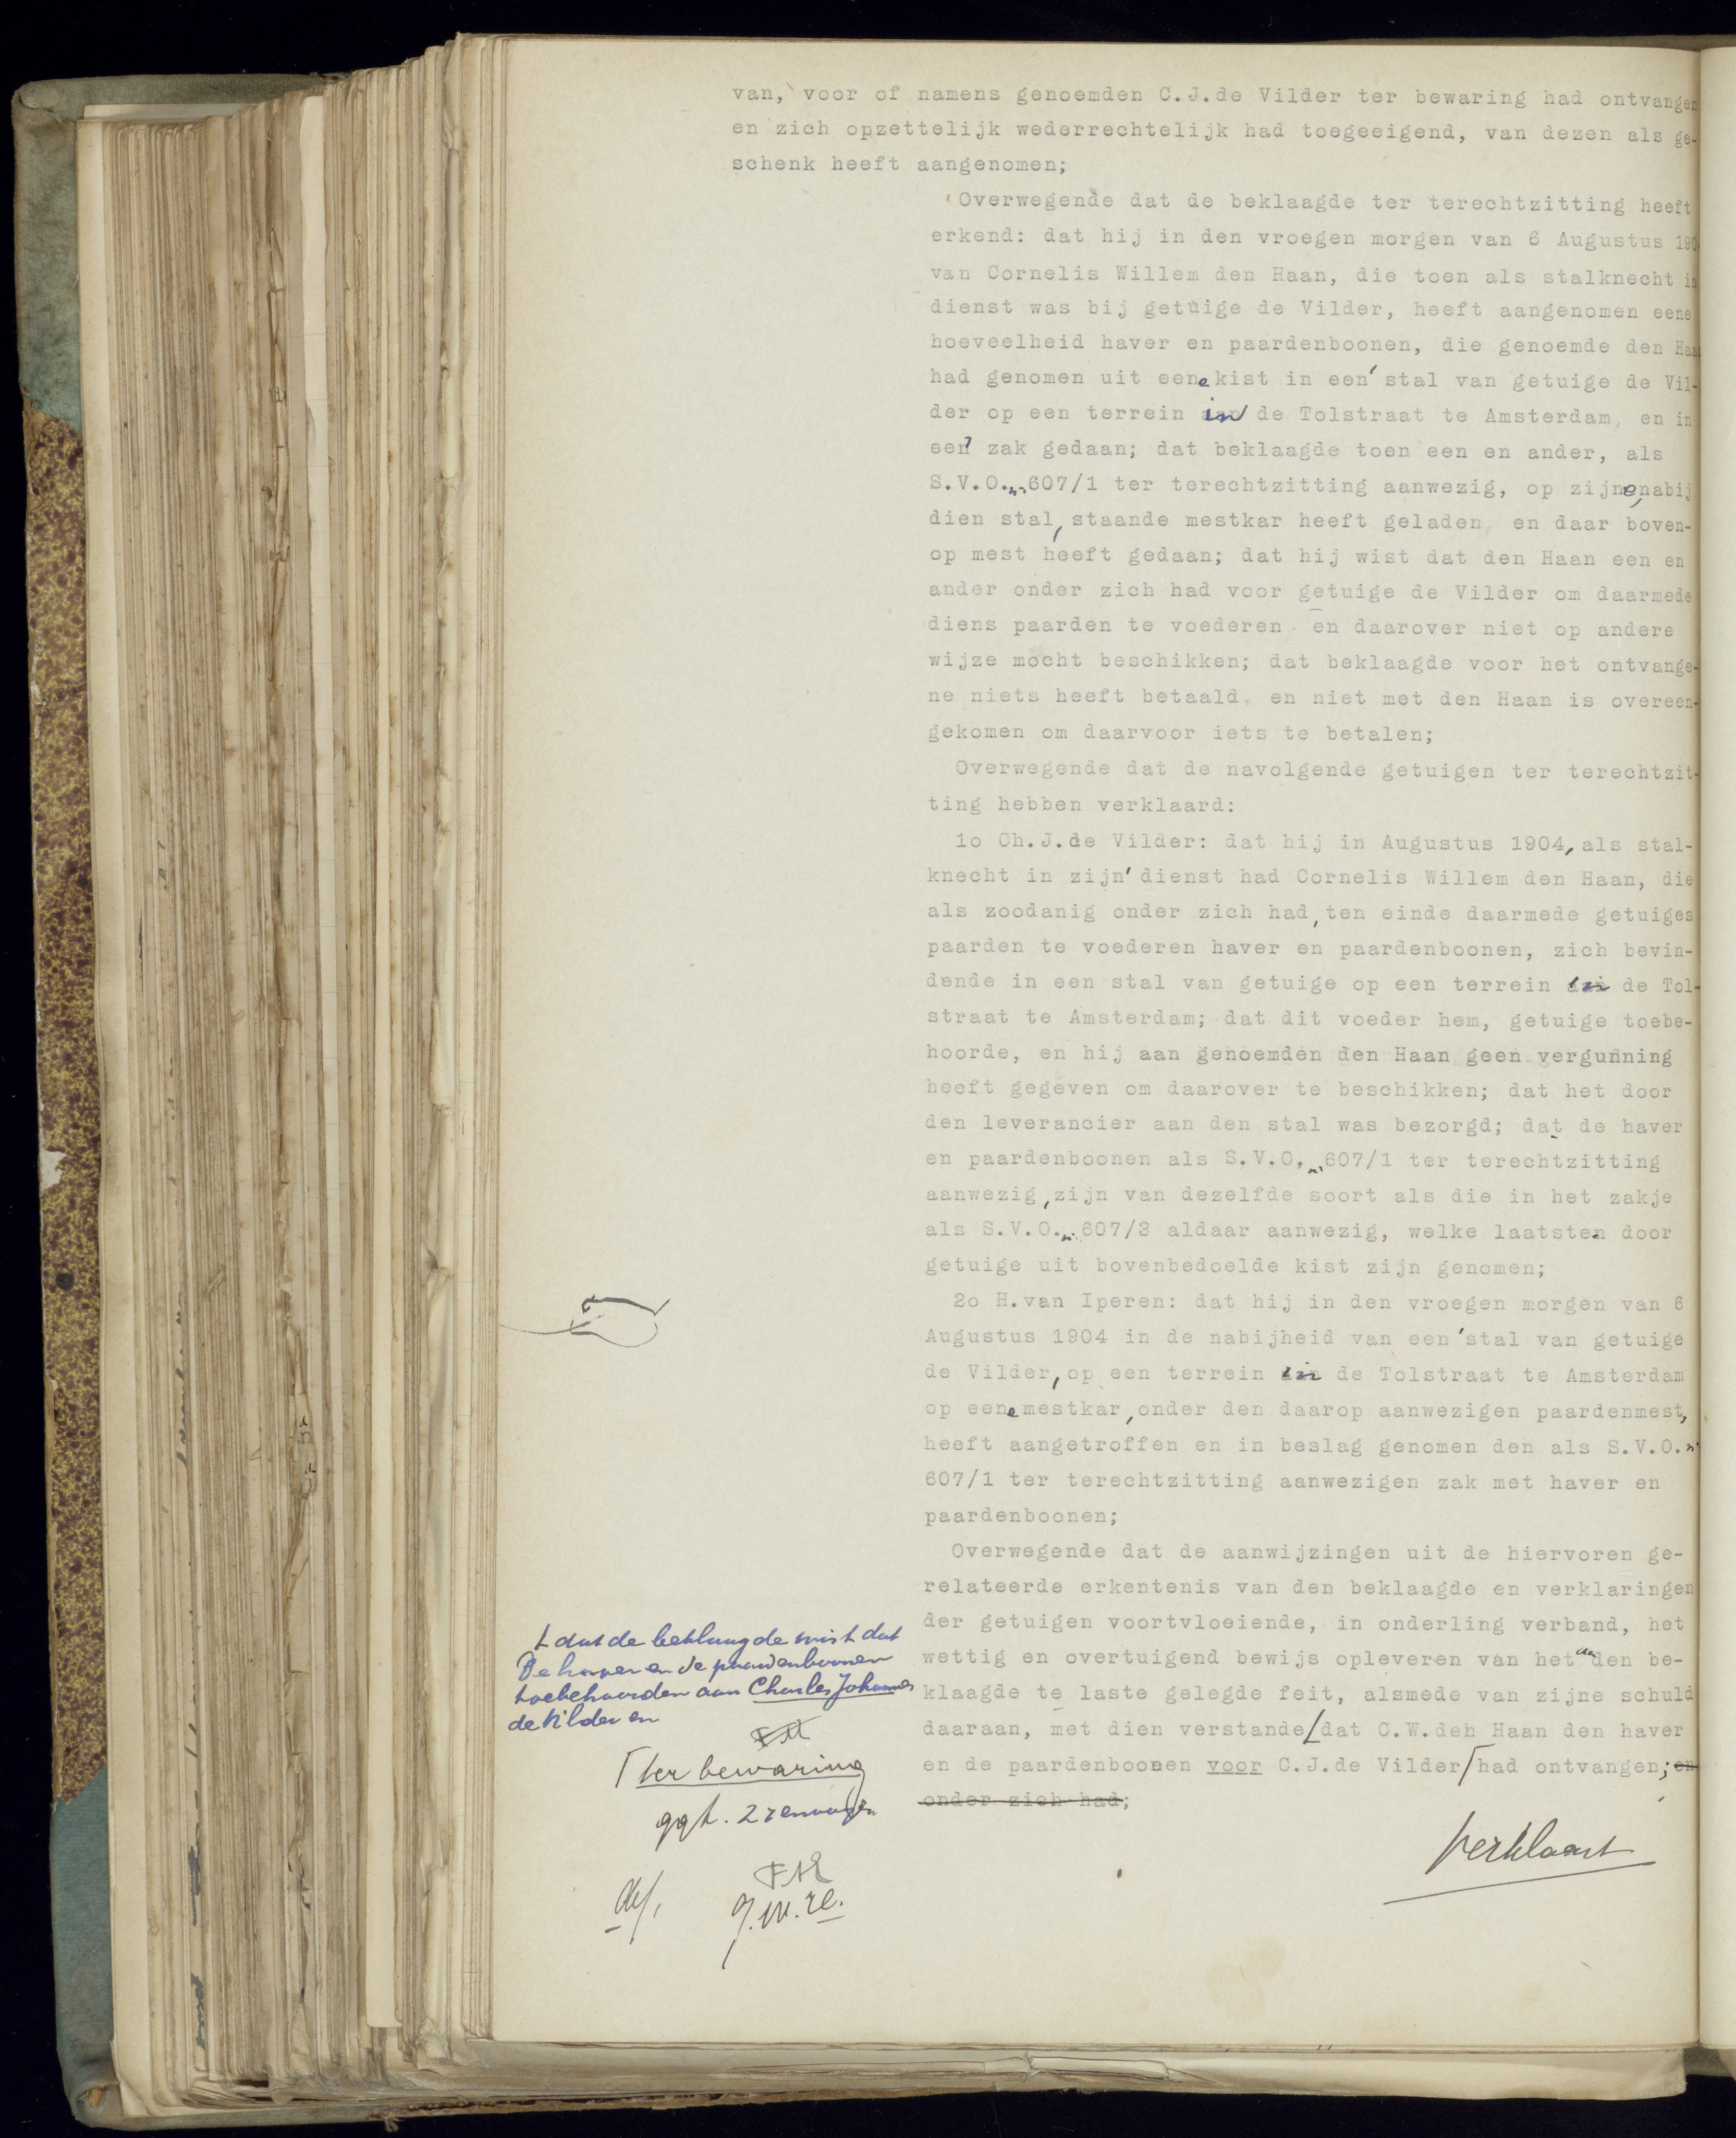 van, voor of namens genoemden C.J.de Vilder ter bewaring had ontvangen
en zich opzettelijk wederrechtelijk had toegeeigend, van dezen als ge-
schenk heeft aangenomen;
Overwegende dat de beklaagde ter terechtzitting heeft
erkend: dat hij in den vroegen morgen van 6 Augustus 190
van Cornelis Willem den Haan, die toen als stalknecht in
dienst was bij getuige de Vilder, heeft aangenomen eene
hoeveelheid haver en paardenboonen, die genoemde den Haan
had genomen uit eene kist in een' stal van getuige de Vil-
der op een terrein in de Tolstraat te Amsterdam, en in
een' zak gedaan; dat beklaagde toen een en ander, als
S.V.O. n° 607/1 ter terechtzitting aanwezig, op zijne, nabij
dien stal, staande mestkar heeft geladen en daar boven-
op mest heeft gedaan; dat hij wist dat den Haan een en
ander onder zich had voor getuige de Vilder om daarmede
diens paarden te voederen en daarover niet op andere
wijze mocht beschikken; dat beklaagde voor het ontvange-
ne niets heeft betaald en niet met den Haan is overeen-
gekomen om daarvoor iets te betalen;
Overwegende dat de navolgende getuigen ter terechtzit-
ting hebben verklaard:
1o Ch.J.de Vilder: dat hij in Augustus 1904, als stal-
knecht in zijn' dienst had Cornelis Willem den Haan, die
als zoodanig onder zich had, ten einde daarmede getuiges
paarden te voederen haver en paardenboonen, zich bevin-
dende in een stal van getuige op een terrein in de Tol-
straat te Amsterdam; dat dit voeder hem, getuige toebe-
hoorde, en hij aan genoemden den Haan geen vergunning
heeft gegeven om daarover te beschikken; dat het door
den leverancier aan den stal was bezorgd; dat de haver
en paardenboonen als S.V.O. n° 607/1 ter terechtzitting
aanwezig, zijn van dezelfde soort als die in het zakje
als S.V.O. n° 607/3 aldaar aanwezig, welke laatsten door
getuige uit bovenbedoelde kist zijn genomen;
2o H.van Iperen: dat hij in den vroegen morgen van 6
Augustus 1904 in de nabijheid van een' stal van getuige
de Vilder, op een terrein in de Tolstraat te Amsterdam
op eene mestkar, onder den daarop aanwezigen paardenmest,
heeft aangetroffen en in beslag genomen den als S.V.O. n°
607/1 ter terechtzitting aanwezigen zak met haver en
paardenboonen;
Overwegende dat de aanwijzingen uit de hiervoren ge-
relateerde erkentenis van den beklaagde en verklaringen
der getuigen voortvloeiende, in onderling verband, het
wettig en overtuigend bewijs opleveren van het aan den be-
klaagde te laste gelegde feit, alsmede van zijne schuld
daaraan, met dien verstande dat C.W.den Haan den haver
en de paardenboonen voor C.J.de Vilder had ontvangen; en
onder zich had;
Verklaart
dat de beklaagde wist dat
de haver en de paardenboonen
toebehoorden aan Charles Johannes
de Vilder en
ter bewaring
ggk. 2 renvooyen